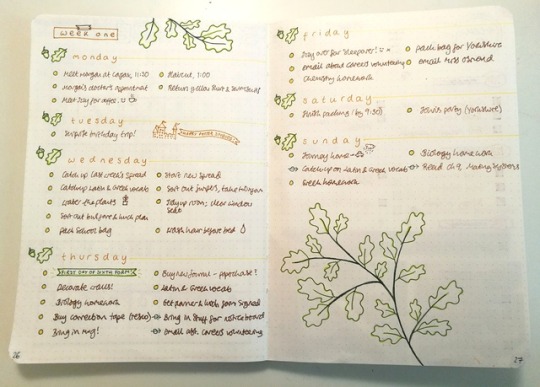 week one
monday
Meet Morgan at Capas, 11:30
Haircut, 1:00
Morgan's doctor's appointment
Return yellow skirt &
Meet Day for coffee
tuesday
Surprise birthday trip!
wednesday
Catch up last week's spread
Start new spread
Catch up Latin & Greek vocab
Sort out jumpers, take Morgan
Water the plants
Tidy up room; clear window
side
Sort out & lunch plan
Pack school bag
Wash hair before bed
thursday
First day of sixth form
Buy new journal - paperchase!
Decorate
Latin & Greek vocab
Biology homework
Get planner & form signed
Buy correction tape (tesco)
Bring in stuff for noticeboard
Bring in mug!
Email abt. careers volunteering
26
friday
over for sleepover!
pack bag for Yorkshire
email about careers volunteering
email Mrs
Chemistry homework
saturday
Finish packing (by 9:30)
party (Yorkshire)
sunday
Journey home
Biology homework
Catch up on Latin & Greek vocab
Read ch 9, Making
Greek homework
27